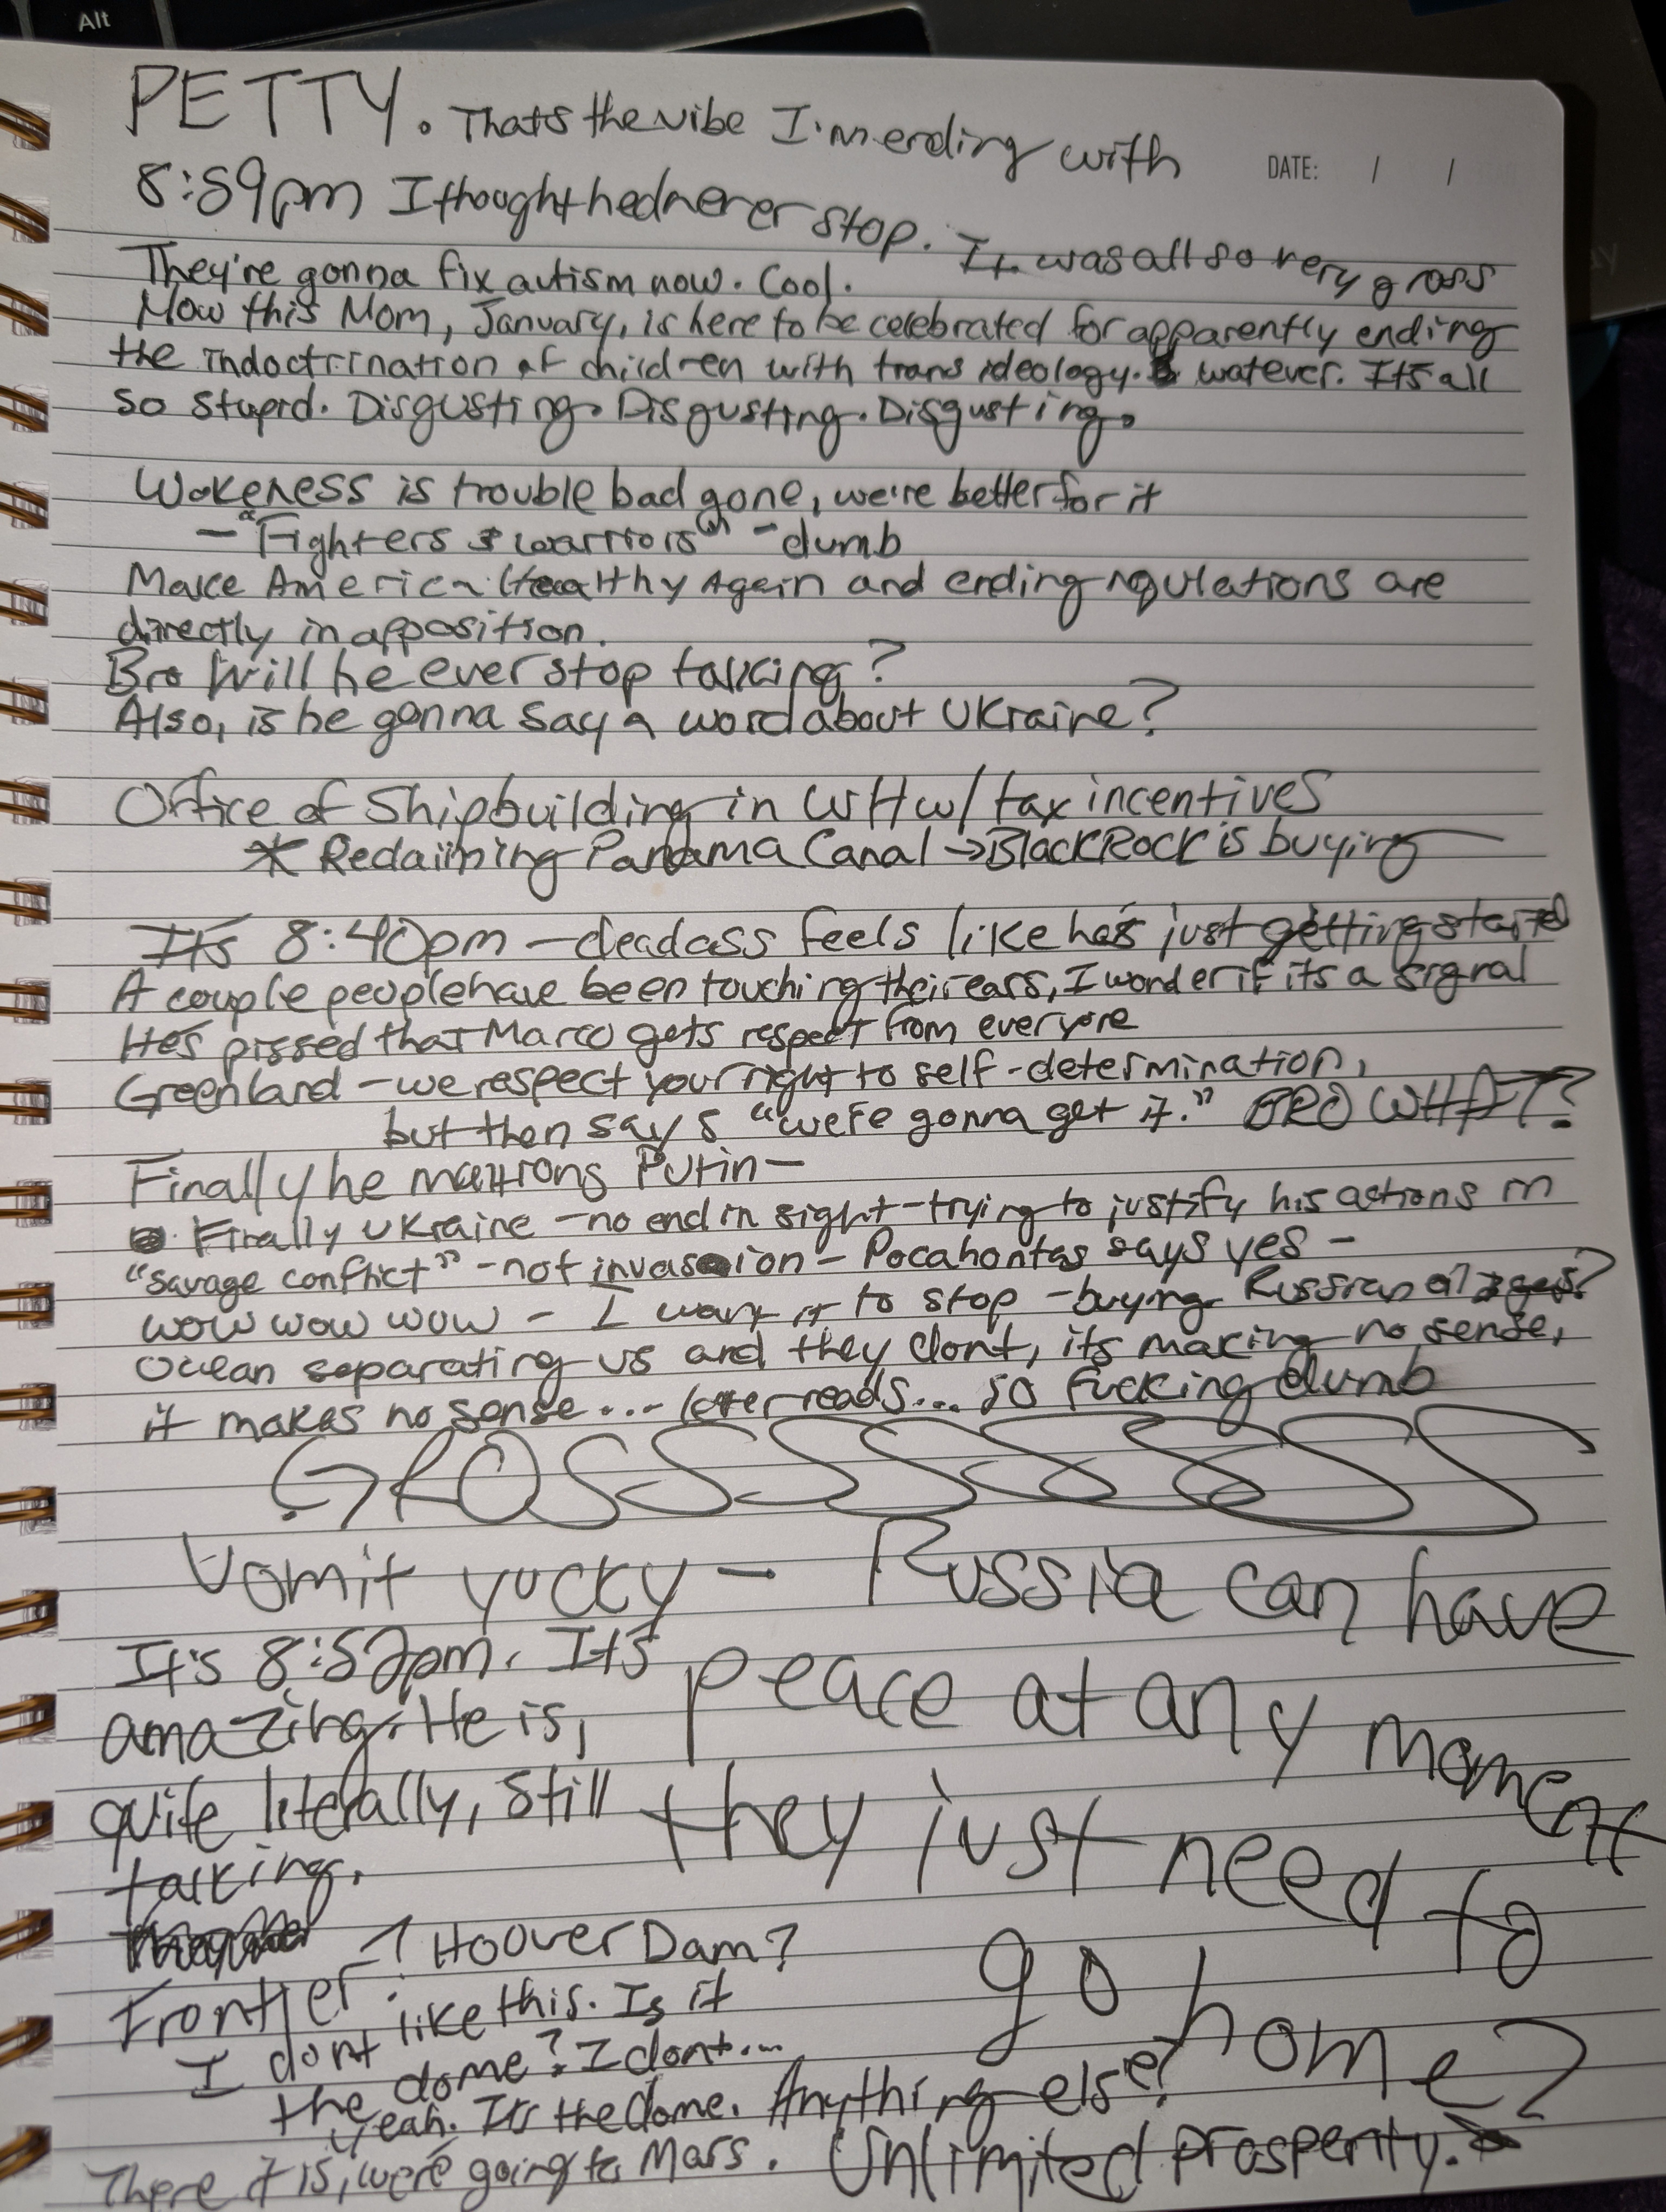 Alt
PETTY. Thats the vibe I'm ending with
DATE: / /
8:59pm I thought hed never stop. It was all so very gross
They're gonna fix autism now. Cool.
Now this Mom, January, is here to be celebrated for apparently ending
the indoctrination of children with trans ideology. watever. It's all
so stupid. Disgusting. Disgusting. Disgusting.
Wokeness is trouble bad gone, we're better for it
- "Fighters & warriors" - dumb
Make America Healthy Again and ending regulations are
directly in apposition.
Bro Will he ever stop talking?
Also, is he gonna say a word about Ukraine?
Office of Shipbuilding in WH w/ tax incentives
* Reclaiming Panama Canal → BlackRock is buying
It's 8:40pm - deadass feels like he's just getting started
A couple people have been touching their ears, I wonder if its a signal
He's pissed that Marco gets respect from everyone
Greenland - we respect your right to self-determination,
but then says "we're gonna get it." BRO WHAT?
Finally he mentions Putin-
Finally Ukraine - no end in sight - trying to justify his actions in
"savage conflict" - not invasion - Pocahontas says yes -
wow wow wow - I want it to stop - buying Russian oil & gas?
Ocean separating us and they dont, its making no sense,
it makes no sense... reads... so fucking dumb
GROSSSSSSSS
Vomit yucky - Russia can have
peace at any moment
they just need to
go home?
It's 8:52pm. It's
amazing. He is,
quite literally, still
talking.
Frontier? Hoover Dam?
I dont like this. Is it
the dome? I dont...
yeah. It's the dome. Anything else?
There it is, we're going to Mars. Unlimited prosperity.